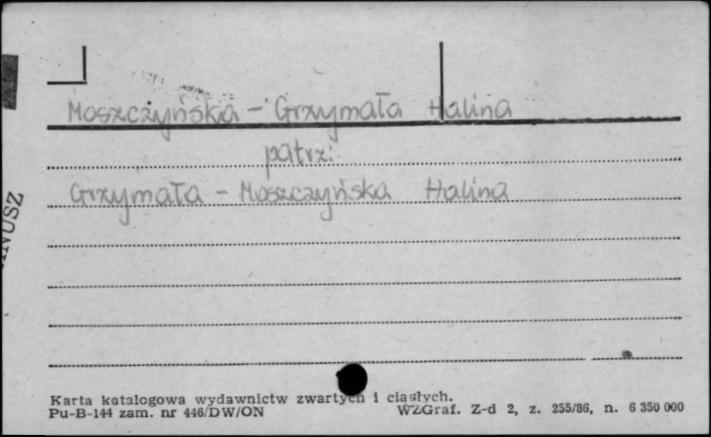 Moszczyńska - Grzymała Halina
patrz:
Grzymała - Moszczyńska Halina
NUSZ
Karta katalogowa wydawnictw zwartych i ciągłych.
Pu-B-144 zam. nr 446/DW/ON WZGraf. Z-d 2, z. 255/86, n. 6 350 000